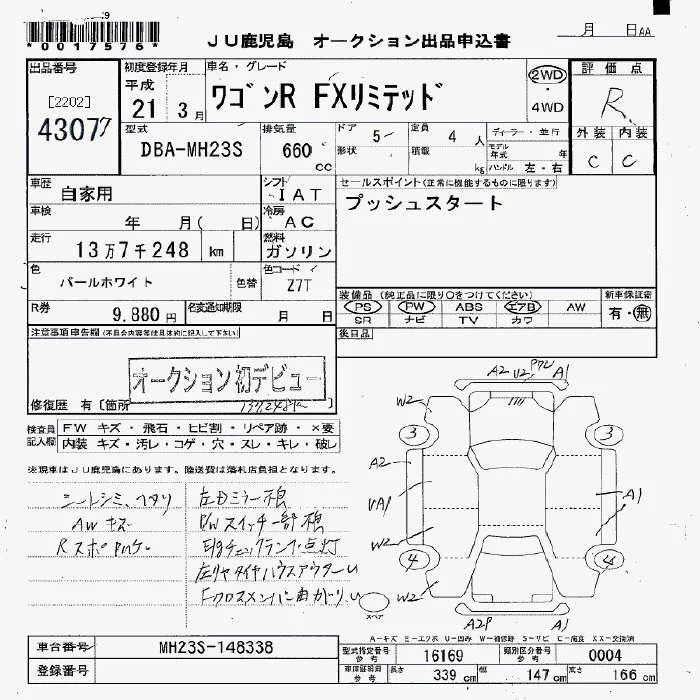 *0017576*
JU鹿児島 オークション出品申込書
月 日AA
出品番号
[2202]
43077
初度登録年月
平成
21 3月
車名・グレード
ワゴンR FXリミテッド
2WD
・
4WD
評価点
R
外装 内装
C C
型式
DBA-MH23S
排気量
660 cc
ドア 5
形状
定員 4 人
積載 kg
ディーラー・並行
モデル年式 年
ハンドル 左・右
車歴
自家用
シフト
IAT
車検
年 月( 日)
冷房
AC
走行
13万7千248 km
燃料
ガソリン
セールスポイント(正常に機能するものに限ります)
プッシュスタート
色
パールホワイト
色替
色コード
Z7T
R券
9,880円
名変通知期限
月 日
装備品(純正品に限り○をつけてください)
PS PW ABS エアB AW
SR ナビ TV カワ
新車保証書
有・無
注意事項申告欄(不具合内容等は具体的に記入して下さい)
後日品
オークション初デビュー
修復歴 有〔箇所
137248k
検査員記入欄
FW キズ・飛石・ヒビ割・リペア跡・×要
内装 キズ・汚レ・コゲ・穴・スレ・キレ・破レ
※現車はJU鹿児島にあります。陸送費は落札店負担となります。
シートシミ、ヘタリ
AWキズ
左Dミラー損
PWスイッチ一部損
Engチェックランプ点灯
A2 U2 A1
W2
3 3
A2
A1
W2
4 4
W2
A2P A1
スペア
A-キズ E-エクボ U-凹み W-補修跡 S-サビ C-腐食 XX-交換済
車台番号
MH23S-148338
登録番号
型式指定番号 参考
16169
類別区分番号 参考
0004
車体詳細 参考
長さ 339 cm
幅 147 cm
高さ 166 cm